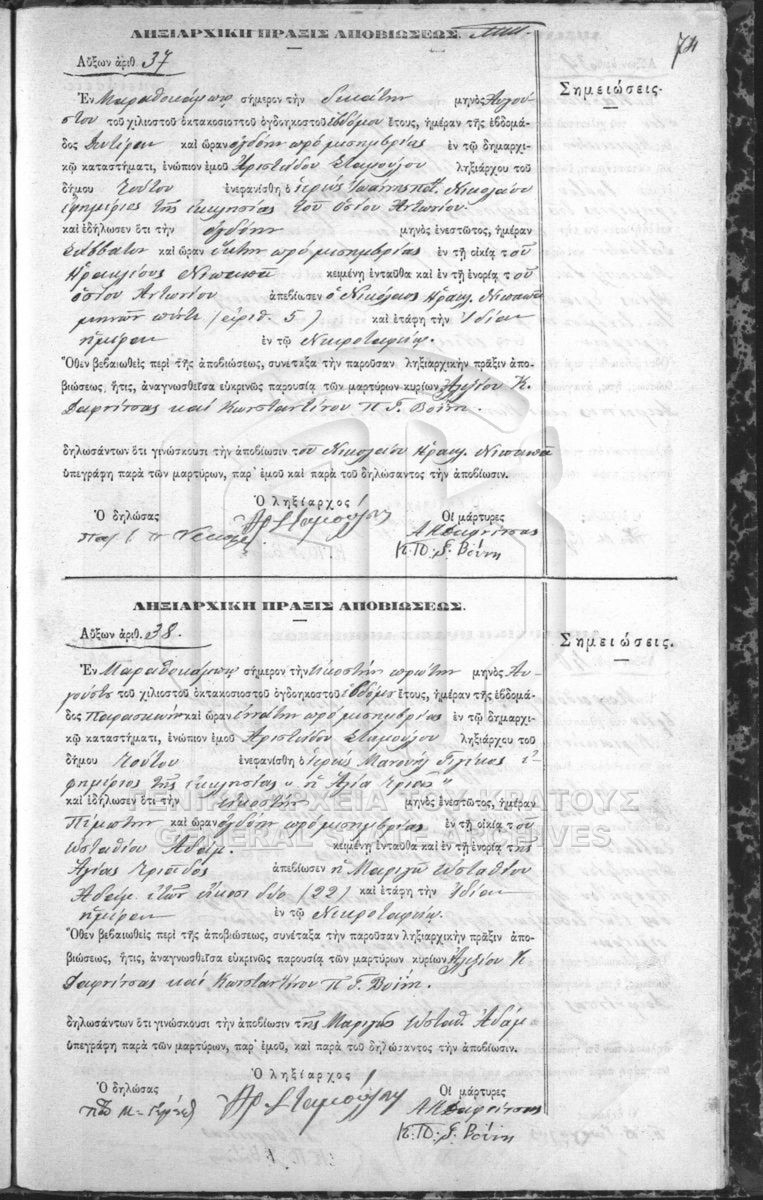 74
ΛΗΞΙΑΡΧΙΚΗ ΠΡΑΞΙΣ ΑΠΟΒΙΩΣΕΩΣ.
Αὔξων ἀριθ. 37
Σημειώσεις.
Ἐν Μαραθοκάμπῳ σήμερον τὴν δεκάτην μηνὸς Αὐγού-
στου τοῦ χιλιοστοῦ ὀκτακοσιοστοῦ ὀγδοηκοστοῦ ἑβδόμου ἔτους, ἡμέραν τῆς ἑβδομά-
δος Δευτέραν καὶ ὥραν ὀγδόην πρὸ μεσημβρίας ἐν τῷ δημαρχι-
κῷ καταστήματι, ἐνώπιον ἐμοῦ Ἀριστείδου Σταμούλου ληξιάρχου τοῦ
δήμου τούτου ἐνεφανίσθη ὁ ἱερεὺς Ἰωάννης Νικολαΐου
ἐφημέριος τῆς ἐκκλησίας τοῦ Ὁσίου Ἀντωνίου.
καὶ ἐδήλωσεν ὅτι τὴν ὀγδόην μηνὸς ἐνεστῶτος, ἡμέραν
Σάββατον καὶ ὥραν ἕκτην πρὸ μεσημβρίας ἐν τῇ οἰκίᾳ τοῦ
Ἡρακλέους κειμένῃ ἐνταῦθα καὶ ἐν τῇ ἐνορίᾳ τοῦ
ὁσίου Ἀντωνίου ἀπεβίωσεν ὁ Νικόλαος Ἡρακλ.
μηνῶν πέντε (ἀριθ. 5) καὶ ἐτάφη τὴν ἰδίαν
ἡμέραν ἐν τῷ Νεκροταφείῳ.
Ὅθεν βεβαιωθεὶς περὶ τῆς ἀποβιώσεως, συνέταξα τὴν παροῦσαν ληξιαρχικὴν πρᾶξιν ἀπο-
βιώσεως, ἥτις, ἀναγνωσθεῖσα εὐκρινῶς παρουσίᾳ τῶν μαρτύρων κυρίων Ἀλεξίου Κ.
Δαφνίτσας καὶ Κωνσταντίνου Π. Γ. Βοΐνη.
δηλωσάντων ὅτι γινώσκουσι τὴν ἀποβίωσιν τοῦ Νικολάου Ἡρακλ.
ὑπεγράφη παρὰ τῶν μαρτύρων, παρ' ἐμοῦ καὶ παρὰ τοῦ δηλώσαντος τὴν ἀποβίωσιν.
Ὁ ληξίαρχος
Ὁ δηλώσας
Οἱ μάρτυρες
Ἀρ Σταμούλου
Α Κ Δαφνίτσας
Κ. Π. Γ. Βοΐνη
ΛΗΞΙΑΡΧΙΚΗ ΠΡΑΞΙΣ ΑΠΟΒΙΩΣΕΩΣ.
Αὔξων ἀριθ. 38.
Σημειώσεις.
Ἐν Μαραθοκάμπῳ σήμερον τὴν εἰκοστὴν πρώτην μηνὸς Αὐ-
γούστου τοῦ χιλιοστοῦ ὀκτακοσιοστοῦ ὀγδοηκοστοῦ ἑβδόμου ἔτους, ἡμέραν τῆς ἑβδομά-
δος Παρασκευὴν καὶ ὥραν ἐννάτην πρὸ μεσημβρίας ἐν τῷ δημαρχι-
κῷ καταστήματι, ἐνώπιον ἐμοῦ Ἀριστείδου Σταμούλου ληξιάρχου τοῦ
δήμου τούτου ἐνεφανίσθη ὁ ἱερεὺς Μανουὴλ ἐ-
φημέριος τῆς ἐκκλησίας „ ἡ Ἁγία Τριάς"
καὶ ἐδήλωσεν ὅτι τὴν εἰκοστὴν μηνὸς ἐνεστῶτος, ἡμέραν
Πέμπτην καὶ ὥραν ὀγδόην πρὸ μεσημβρίας ἐν τῇ οἰκίᾳ τοῦ
Εὐσταθίου Ἀδάμ. κειμένῃ ἐνταῦθα καὶ ἐν τῇ ἐνορίᾳ τῆς
Ἁγίας Τριάδος ἀπεβίωσεν ἡ Μαριγὼ Εὐσταθίου
Ἀδάμ ἐτῶν εἴκοσι δύο (22) καὶ ἐτάφη τὴν ἰδίαν
ἡμέραν ἐν τῷ Νεκροταφείῳ.
Ὅθεν βεβαιωθεὶς περὶ τῆς ἀποβιώσεως, συνέταξα τὴν παροῦσαν ληξιαρχικὴν πρᾶξιν ἀπο-
βιώσεως, ἥτις, ἀναγνωσθεῖσα εὐκρινῶς παρουσίᾳ τῶν μαρτύρων κυρίων Ἀλεξίου Κ
Δαφνίτσας καὶ Κωνσταντίνου Π Γ. Βοΐνη.
δηλωσάντων ὅτι γινώσκουσι τὴν ἀποβίωσιν τῆς Μαριγῶς Εὐσταθ. Ἀδάμ
ὑπεγράφη παρὰ τῶν μαρτύρων, παρ' ἐμοῦ, καὶ παρὰ τοῦ δηλώσαντος τὴν ἀποβίωσιν.
Ὁ ληξίαρχος
Ὁ δηλώσας
Οἱ μάρτυρες
Ἀρ Σταμούλου
Α Κ Δαφνίτσας
Κ. Π. Γ. Βοΐνη
ΓΕΝΙΚΑ ΑΡΧΕΙΑ ΤΟΥ ΚΡΑΤΟΥΣ
GENERAL STATE ARCHIVES